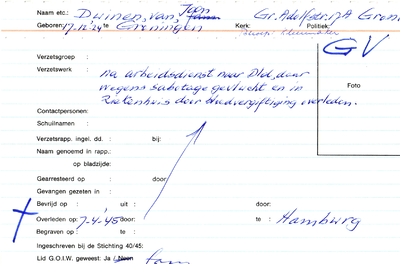 Naam etc.: Duinen, van, Jan Gr. Adolfstr. 17A Gron
Geboren: 17.12.'24 te Groningen Kerk: Politiek:
GV
Verzetsgroep :
Verzetswerk : na arbeidsdienst naar Dld, daar
wegens sabotage gevlucht en in
Ziekenhuis door bloedvergiftiging overleden.
Foto
Contactpersonen:
Schuilnamen :
Verzetsrapp. ingel. dd. : bij:
Naam genoemd in rapp.:
op bladzijde:
Gearresteerd op : door:
Gevangen gezeten in :
Bevrijd op : uit : door:
Overleden op : 7-4-'45 door: te : Hamburg
Begraven op : te :
Ingeschreven bij de Stichting 40/45:
Lid G.O.I.W. geweest: Ja / Neen